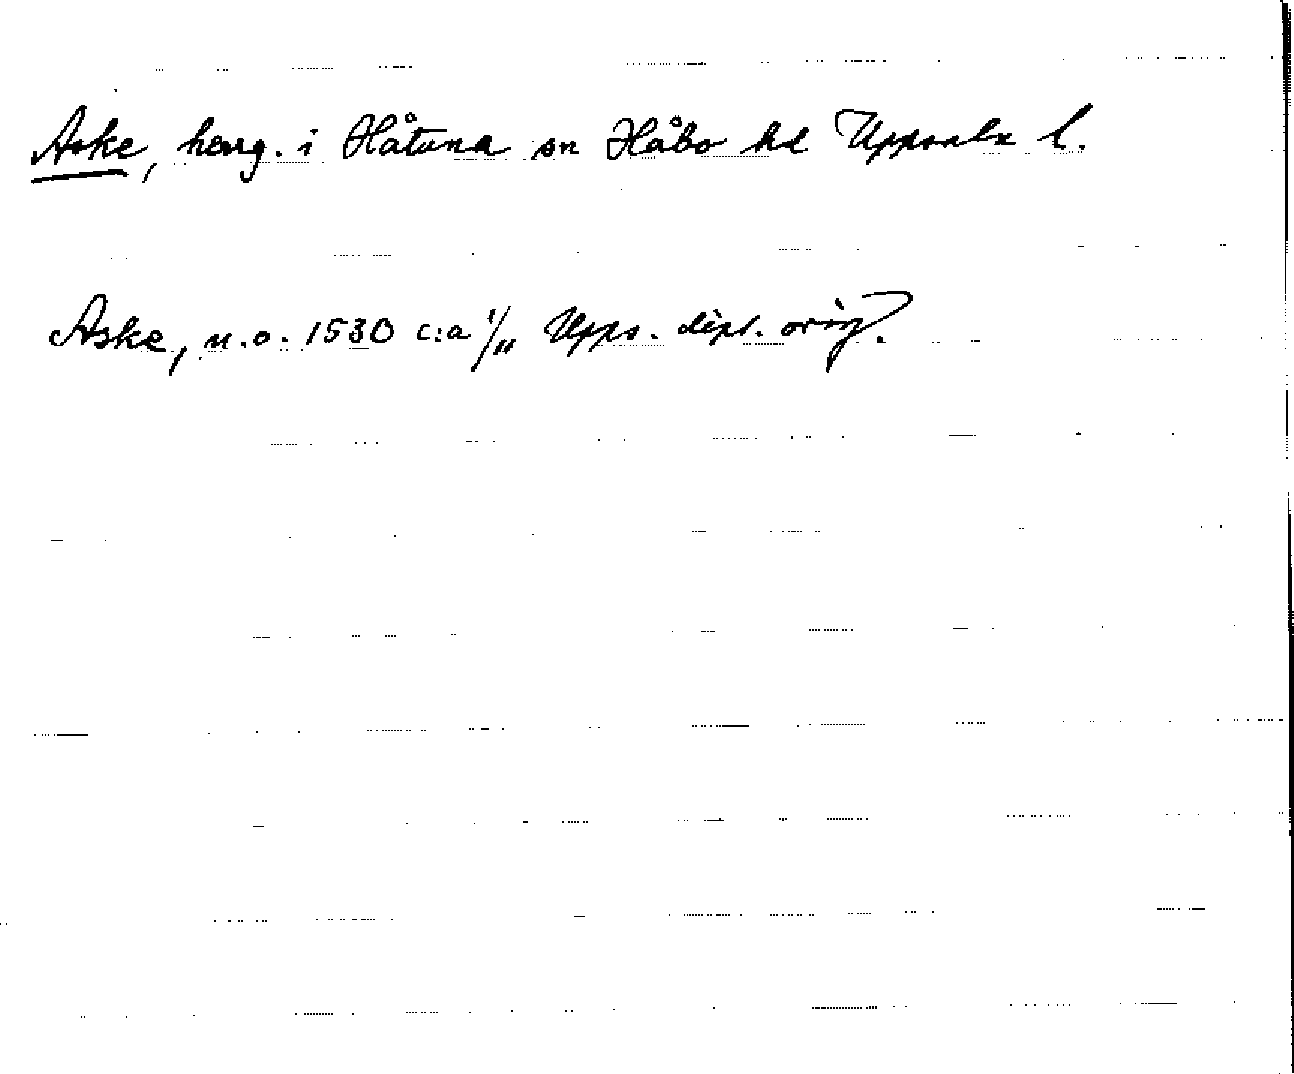 Aske, herrg. i Håtuna sn Håbo hd Uppsala l.
Aske, u.o. 1530 c:a 1/11 Upps. dipl. orig.